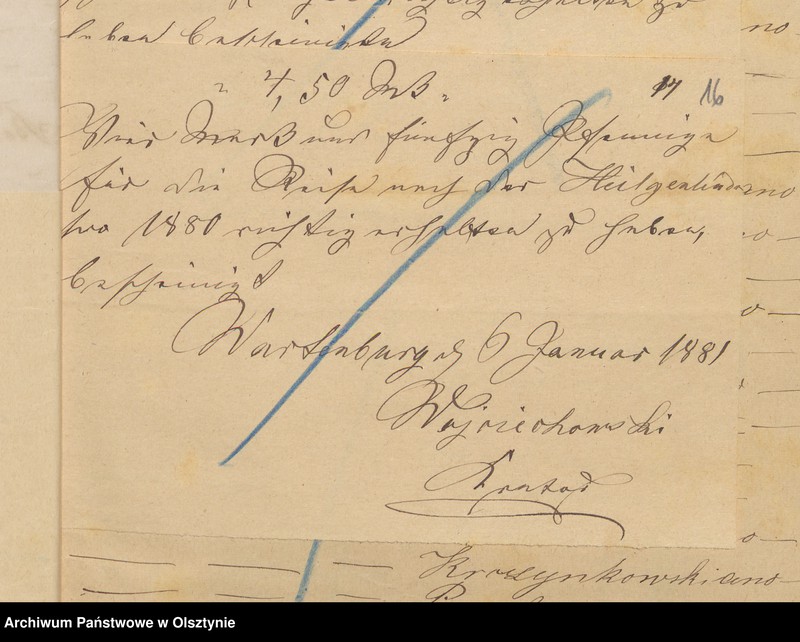 haben bescheinigt
4,50 Mk.
17 16
Vier Mark und fünfzig Pfennige
für die Reise nach der Heilgenlinde
pro 1880 richtig erhalten zu haben,
bescheinigt
Wartenburg d 6 Januar 1881
Wojciechowski
Kantor
Kroszynkowski
Archiwum Państwowe w Olsztynie